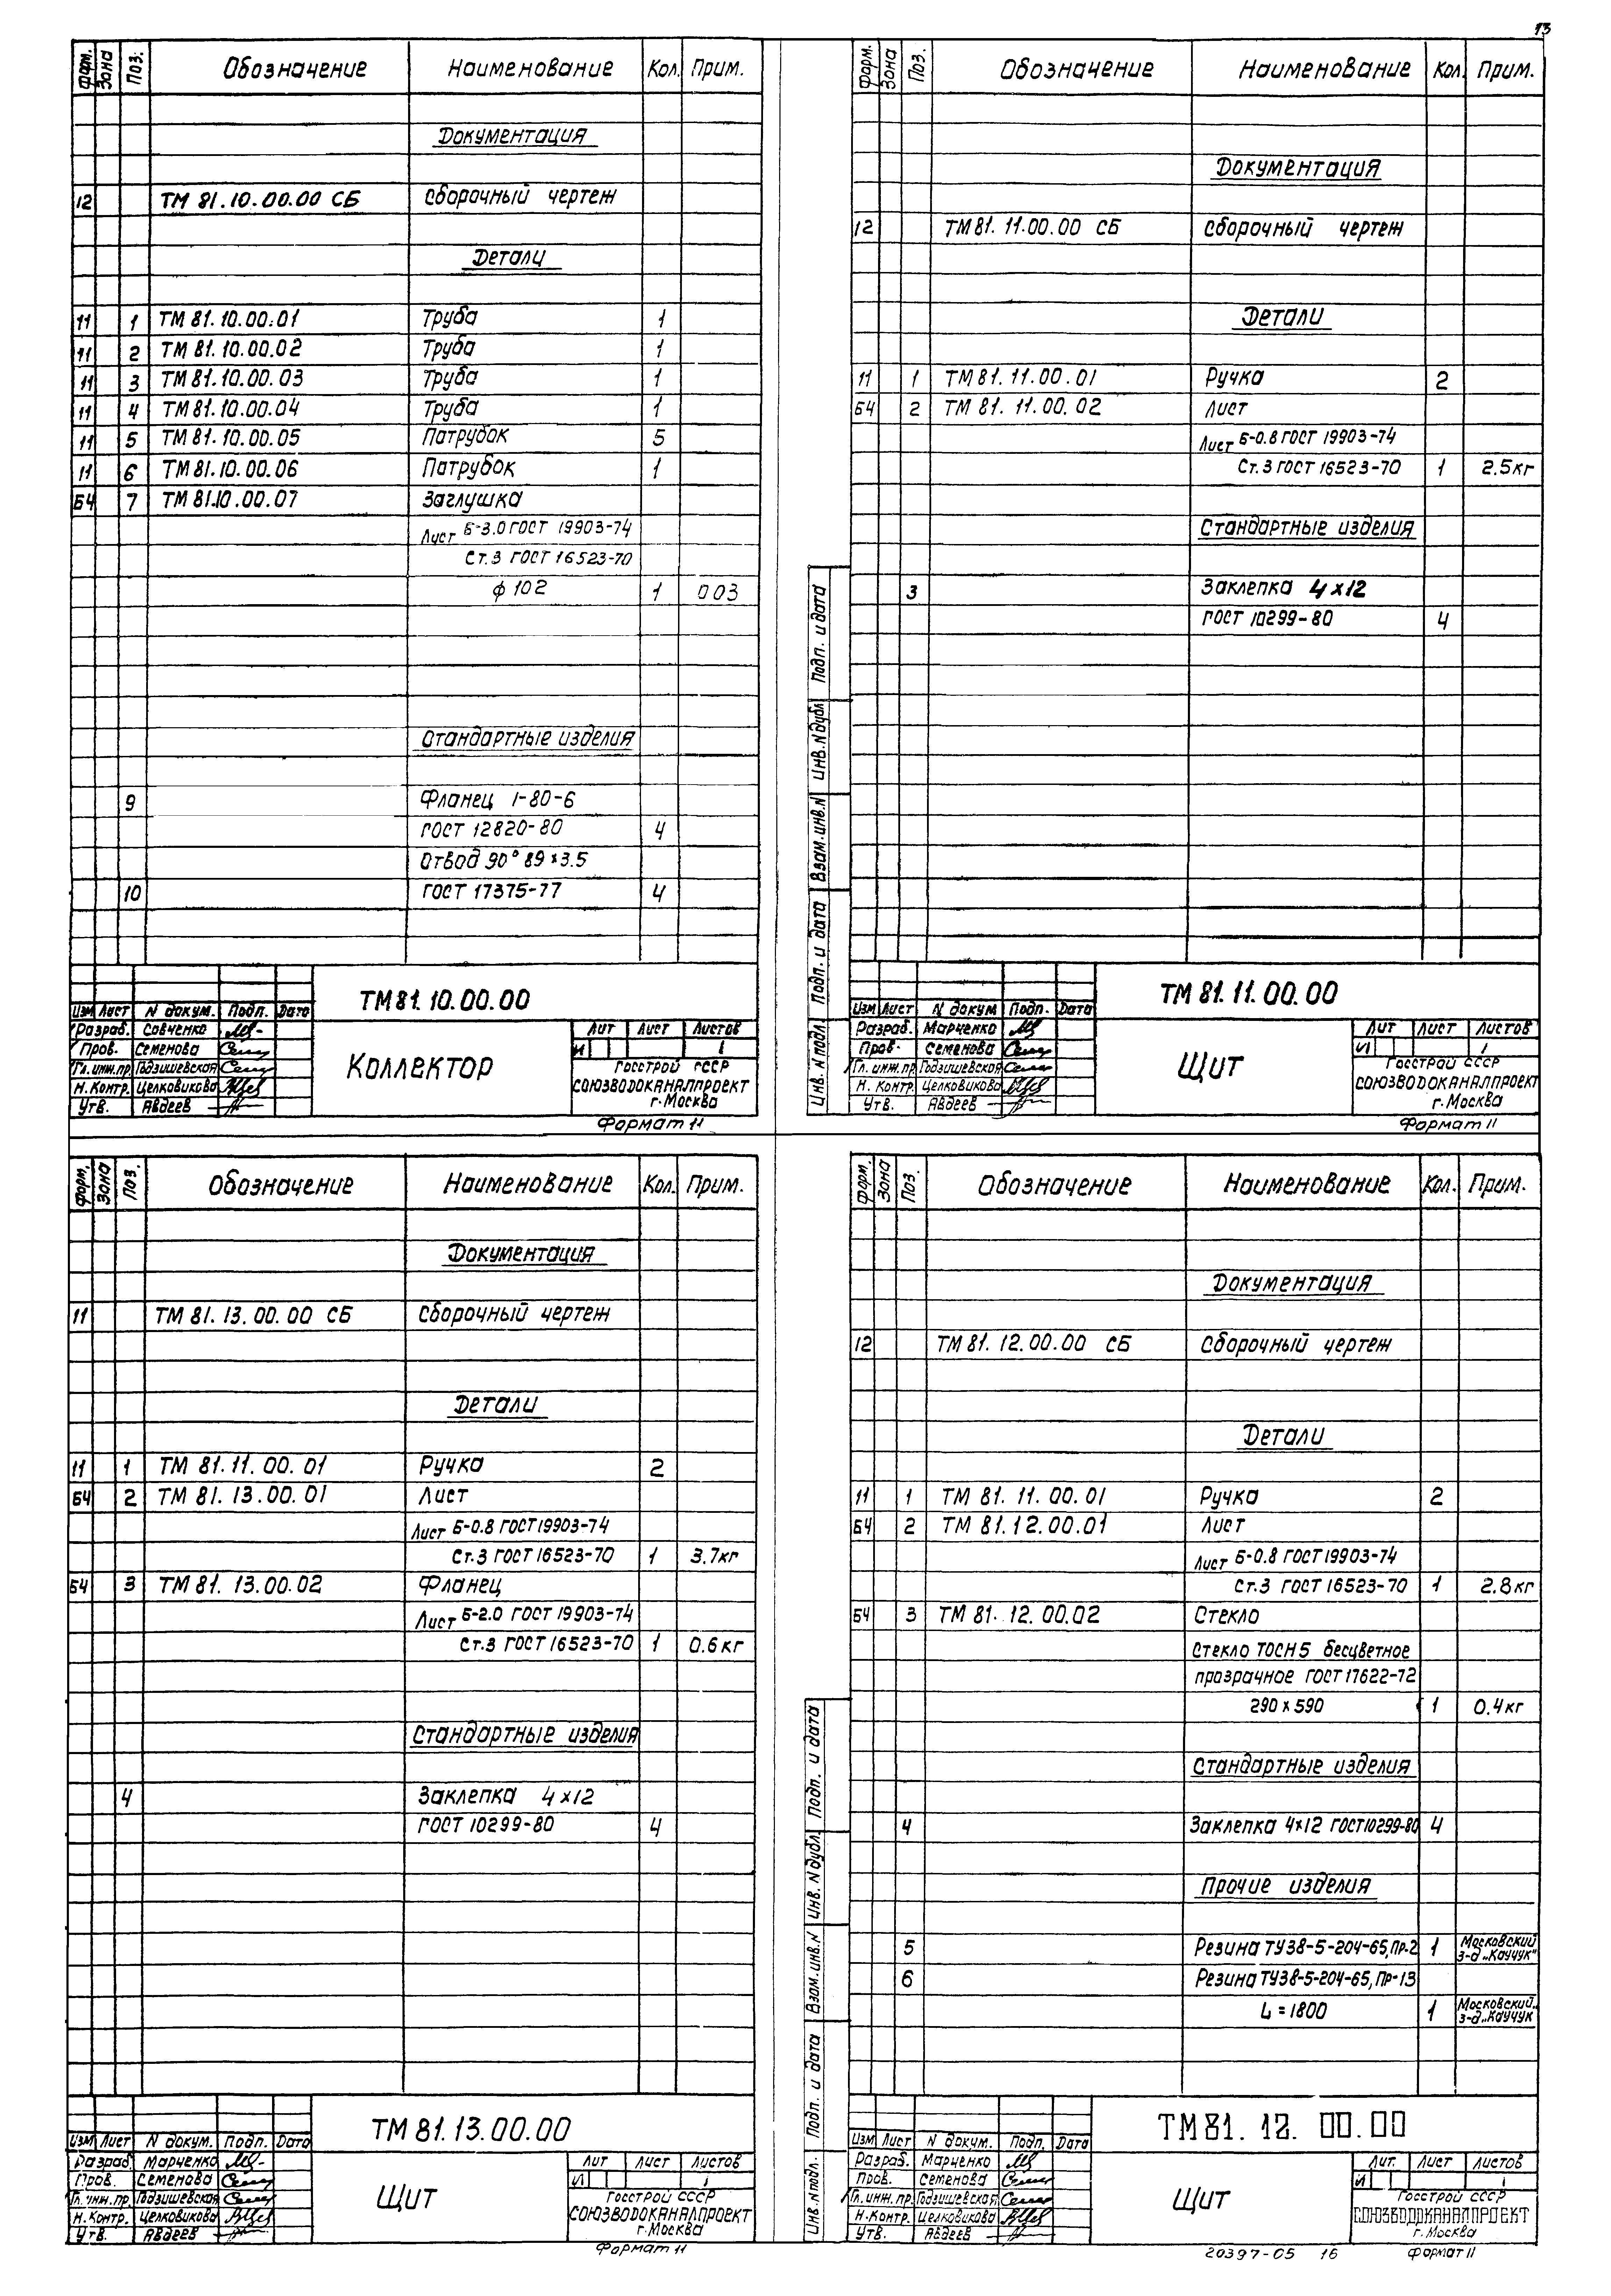 13
Форм. Зона Поз. Обозначение Наименование Кол. Прим.
Документация
12 ТМ 81.10.00.00 СБ Сборочный чертеж
Детали
11 1 ТМ 81.10.00.01 Труба 1
11 2 ТМ 81.10.00.02 Труба 1
11 3 ТМ 81.10.00.03 Труба 1
11 4 ТМ 81.10.00.04 Труба 1
11 5 ТМ 81.10.00.05 Патрубок 5
11 6 ТМ 81.10.00.06 Патрубок 1
БЧ 7 ТМ 81.10.00.07 Заглушка
Лист Б-3.0 ГОСТ 19903-74
Ст.3 ГОСТ 16523-70
ф 102 1 0 03
Стандартные изделия
9 Фланец 1-80-6
ГОСТ 12820-80 4
Отвод 90° 89×3.5
10 ГОСТ 17375-77 4
ТМ 81.10.00.00
Изм Лист N докум. Подп. Дата
Разраб. Савченко
Пров. Семенова
Гл. инж. пр. Годзишевская
Н. Контр. Целковикова
Утв. Авдеев
Коллектор
Лит Лист Листов
И 1
Госстрой СССР
СОЮЗВОДОКАНАЛПРОЕКТ
г. Москва
Формат 11
Форм. Зона Поз. Обозначение Наименование Кол. Прим.
Документация
12 ТМ 81.11.00.00 СБ Сборочный чертеж
Детали
11 1 ТМ 81.11.00.01 Ручка 2
БЧ 2 ТМ 81.11.00.02 Лист
Лист Б-0.8 ГОСТ 19903-74
Ст.3 ГОСТ 16523-70 1 2.5кг
Стандартные изделия
3 Заклепка 4×12
ГОСТ 10299-80 4
Подп. и дата
Инв. N дубл
Взам. инв. N
Подп. и дата
Инв. N подл.
ТМ 81.11.00.00
Изм Лист N докум Подп. Дата
Разраб. Марченко
Пров. Семенова
Гл. инж. пр. Годзишевская
Н. Контр. Целковикова
Утв. Авдеев
Щит
Лит Лист Листов
И 1
Госстрой СССР
СОЮЗВОДОКАНАЛПРОЕКТ
г. Москва
Формат 11
Форм. Зона Поз. Обозначение Наименование Кол. Прим.
Документация
11 ТМ 81.13.00.00 СБ Сборочный чертеж
Детали
11 1 ТМ 81.11.00.01 Ручка 2
БЧ 2 ТМ 81.13.00.01 Лист
Лист Б-0.8 ГОСТ 19903-74
Ст.3 ГОСТ 16523-70 1 3.7кг
БЧ 3 ТМ 81.13.00.02 Фланец
Лист Б-2.0 ГОСТ 19903-74
Ст.3 ГОСТ 16523-70 1 0.6кг
Стандартные изделия
4 Заклепка 4×12
ГОСТ 10299-80 4
ТМ 81.13.00.00
Изм Лист N докум. Подп. Дата
Разраб. Марченко
Пров. Семенова
Гл. инж. пр. Годзишевская
Н. Контр. Целковикова
Утв. Авдеев
Щит
Лит Лист Листов
И 1
Госстрой СССР
СОЮЗВОДОКАНАЛПРОЕКТ
г. Москва
Формат 11
Форм. Зона Поз. Обозначение Наименование Кол. Прим.
Документация
12 ТМ 81.12.00.00 СБ Сборочный чертеж
Детали
11 1 ТМ 81.11.00.01 Ручка 2
БЧ 2 ТМ 81.12.00.01 Лист
Лист Б-0.8 ГОСТ 19903-74
Ст.3 ГОСТ 16523-70 1 2.8кг
БЧ 3 ТМ 81.12.00.02 Стекло
Стекло ТОСН 5 бесцветное
прозрачное ГОСТ 17622-72
290×590 1 0.4кг
Стандартные изделия
4 Заклепка 4×12 ГОСТ 10299-80 4
Прочие изделия
5 Резина ТУ38-5-204-65, Пр-2 1 Московский
з-д „Каучук"
6 Резина ТУ38-5-204-65, Пр-13
L=1800 1 Московский
з-д „Каучук
Подп. и дата
Инв. N дубл.
Взам. инв. N
Подп. и дата
Инв. N подл.
ТМ 81.12.00.00
Изм Лист N докум. Подп. Дата
Разраб. Марченко
Пров. Семенова
Гл. инж. пр. Годзишевская
Н. Контр. Целковикова
Утв. Авдеев
Щит
Лит. Лист Листов
И 1
Госстрой СССР
СОЮЗВОДОКАНАЛПРОЕКТ
г. Москва
20397-05 16 Формат 11